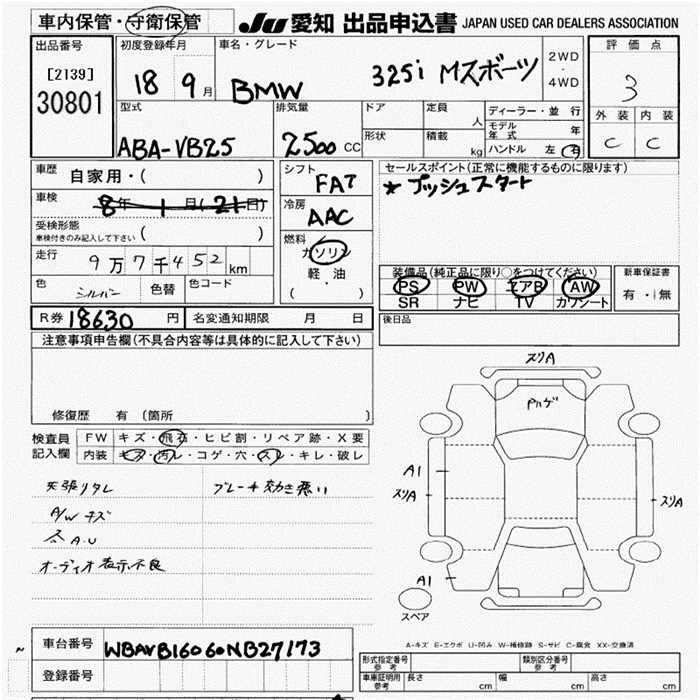 車内保管・守衛保管 JU 愛知 出品申込書 JAPAN USED CAR DEALERS ASSOCIATION
出品番号
[2139]
30801
初度登録年月
18 9 月
車名・グレード
BMW 325i Mスポーツ
2WD
・
4WD
評価点
3
外装 内装
C C
型式
ABA-VB25
排気量
2500 CC
ドア
形状
定員
人
積載
kg
ディーラー・並行
モデル年式 年
ハンドル 左 右
車歴
自家用・( )
車検
8年 1月(21日)
受検形態
車検付きのみ記入して下さい ( )
走行
9万7千452km
色
シルバー
色替
色コード
シフト
FAT
冷房
AAC
燃料
ガソリン
軽・油
( )
セールスポイント(正常に機能するものに限ります)
★プッシュスタート
装備品(純正品に限り○をつけてください)
PS PW エアB AW
SR ナビ TV カワシート
新車保証書
有・無
R券 18630 円 名変通知期限 月 日
後日品
注意事項申告欄(不具合内容等は具体的に記入して下さい)
修復歴 有 (箇所 )
検査員
記入欄
FW キズ・飛石・ヒビ割・リペア跡・X要
内装 キズ・汚レ・コゲ・穴・スレ・キレ・破レ
天張りタレ
A/W キズ
各A.U
オーディオ表示不良
ブレーキ効き悪い
スリA
A1
スリA
スリA
A1
スペア
A-キズ E-エクボ U-凹み W-補修跡 S-サビ C-腐食 XX-交換済
車台番号
WBAVB16060NB27173
登録番号
形式指定番号
参考
類別区分番号
参考
車庫証明用
参考
長さ cm 幅 cm 高さ cm